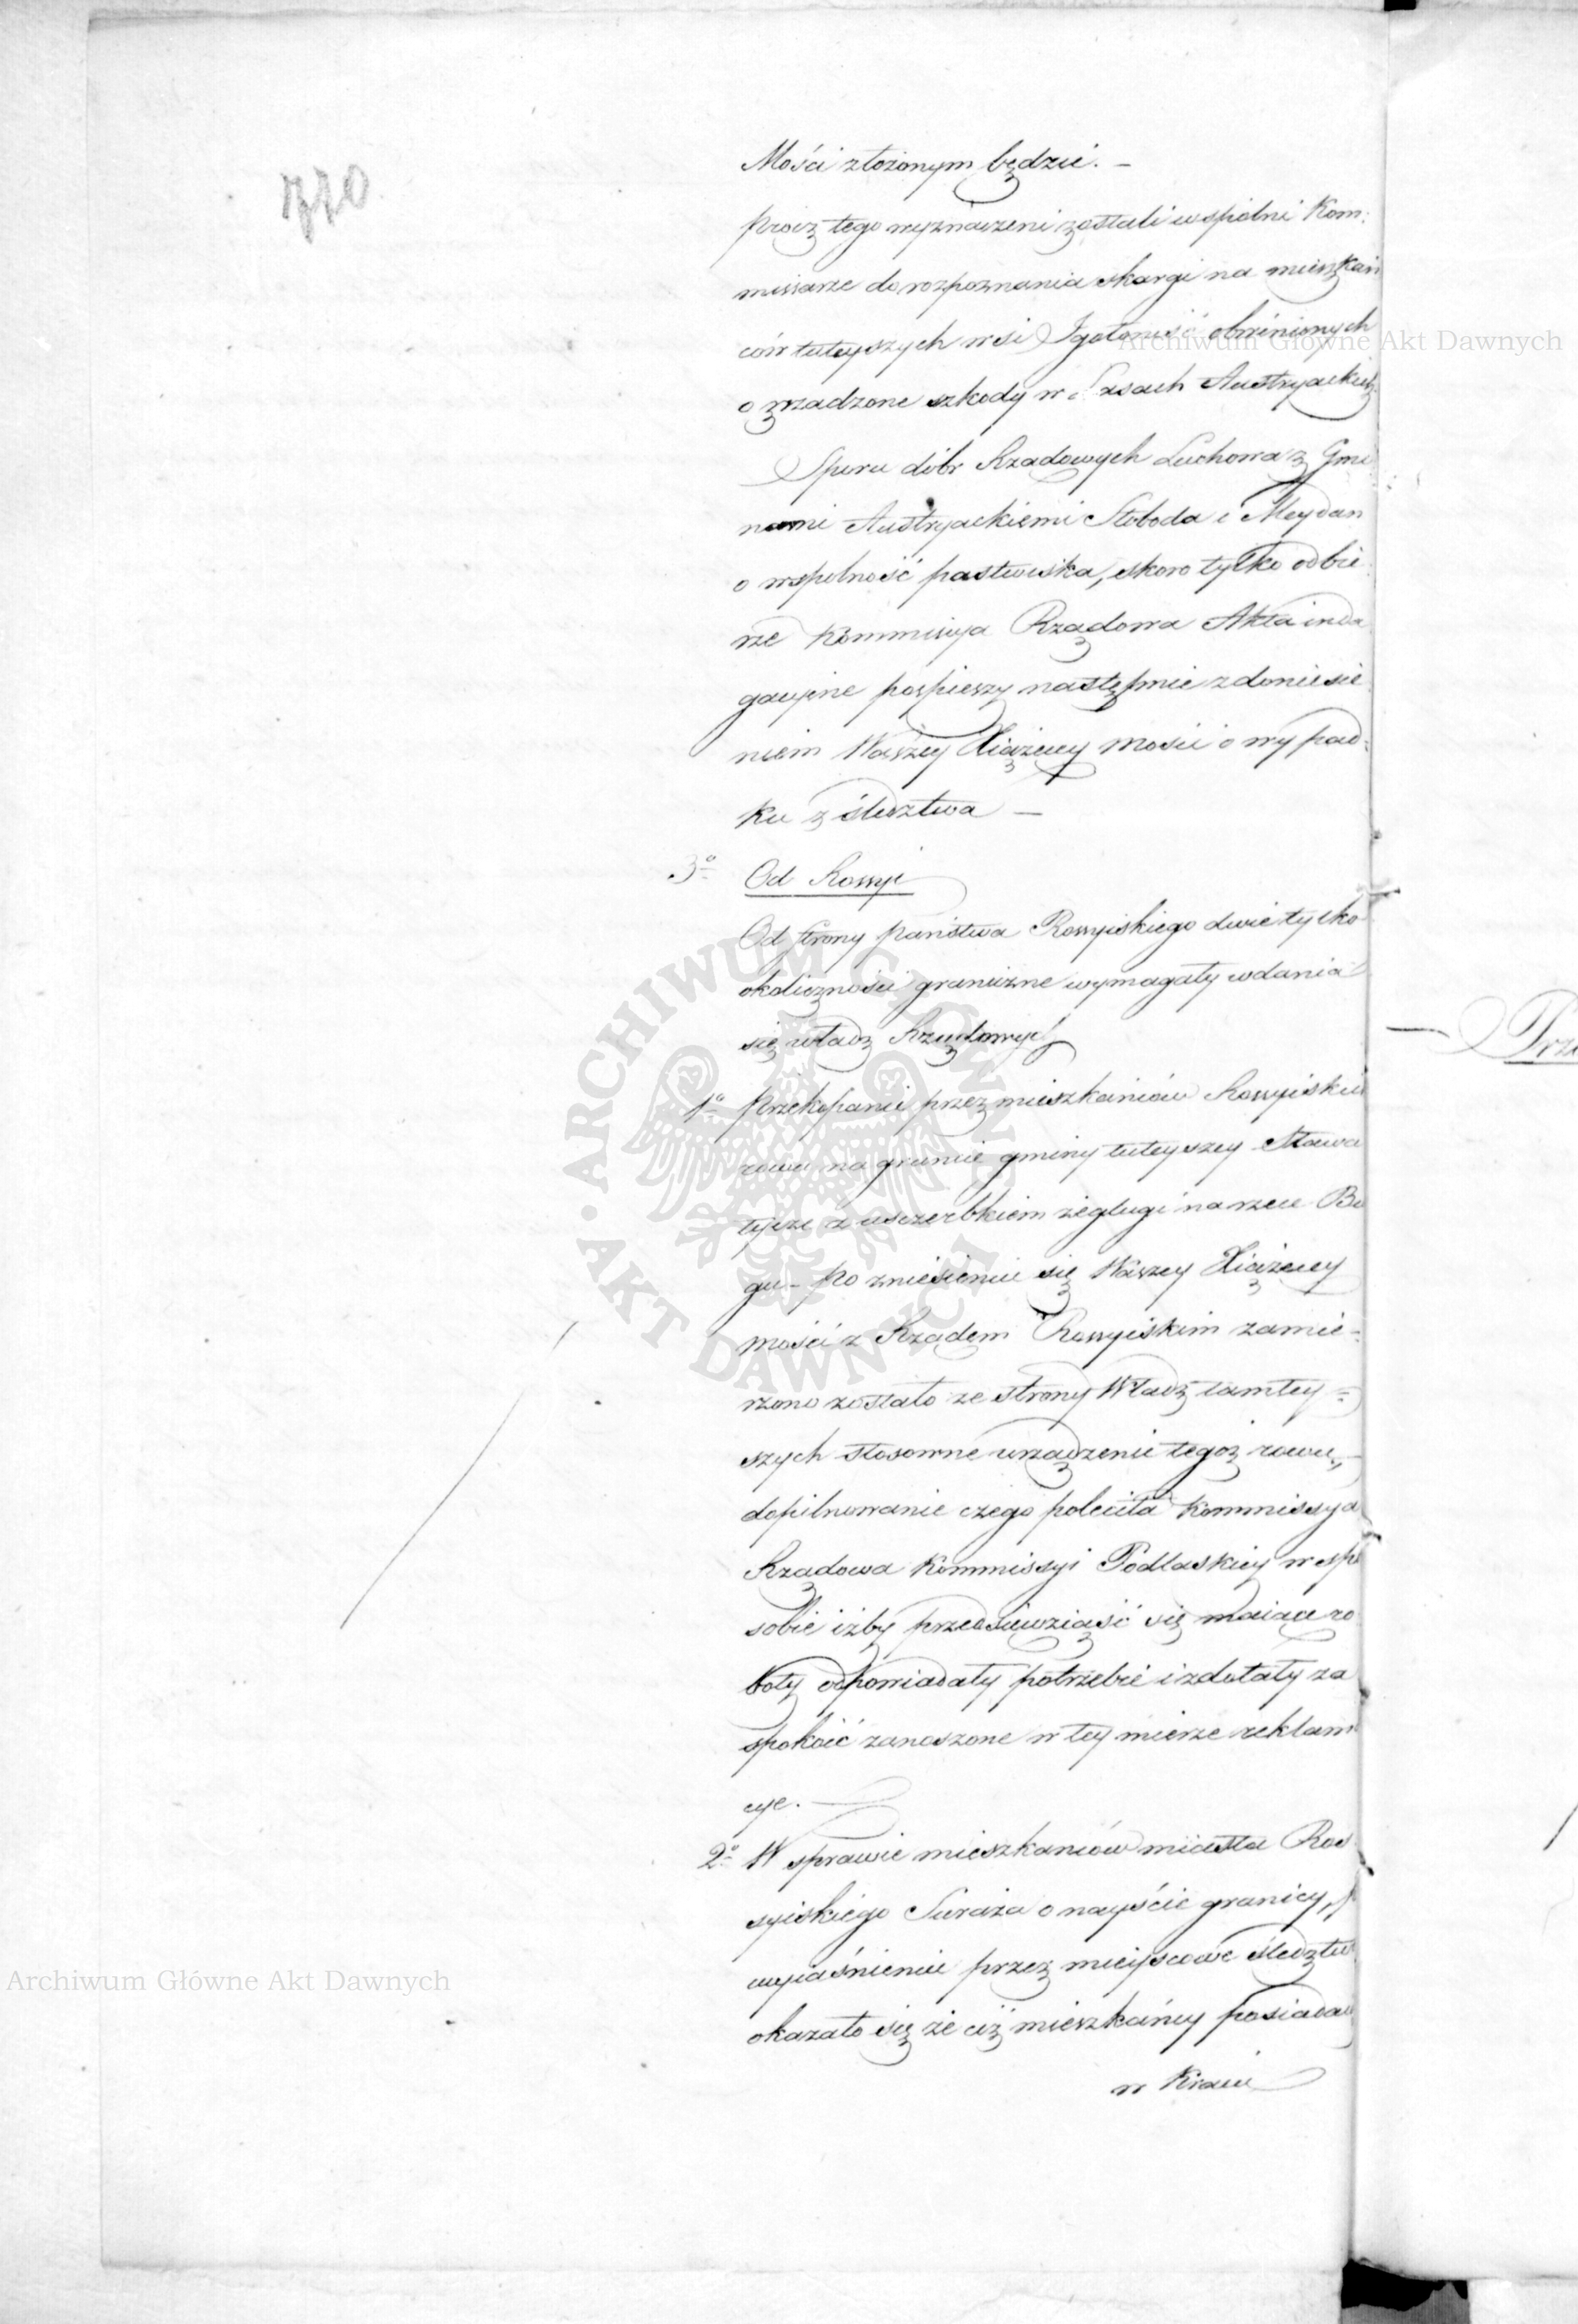 770
Mości złożonym będzie. —
prócz tego wyznaczeni zostali wspólni Kom:
missarze do rozpoznania skargi na mieszkań
ców tuteyszych wsi Igołomść obwinionych
o zrządzone szkody w Lasach Austryackich
Sporu dóbr Rządowych Luchowa z Gmi
nami Austryackiemi Słoboda i Meydan
o wspolność pastwiska, skoro tylko odbie
rze Kommissya Rządowa Akta inda
gacyine pospieszy następnie z doniesie
niem Waszey Xiążęcey Mości o wypad:
ku z śledztwa —
3o Od Rossyi
Od strony państwa Rossyiskiego dwie tylko
okoliczności graniczne wymagały wdania
się władz Rządowych
1o Przekopanie przez mieszkańców Rossyiskich
rowu na gruncie gminy tuteyszey Sława
tycze z uszczerbkiem żeglugi na rzece Bu
gu – po zniesieniu się Waszey Xiążęcey
Mości z Rządem Rossyiskim zamie=
rzono zostało ze strony Władz tamtey=
szych stosowne urządzenie tegoż rowu,
dopilnowanie czego poleciła Kommissya
Rządowa Kommissyi Podlaskiey w spo
sobie iżby przedsięwziąść się maiące ro
boty odpowiadały potrzebie i zdołały za
spokoić zanoszone w tey mierze reklama
cye. —
2o W sprawie mieszkańców miasta Ros
syiskiego Suraża o nayście granicy, p
wyiaśnienie przez mieyscowe śledztwo
okazało się że ciż mieszkańcy posiadaią
w Kraiu
Prze
Archiwum Główne Akt Dawnych
Archiwum Główne Akt Dawnych
ARCHIWUM GŁÓWNE AKT DAWNYCH